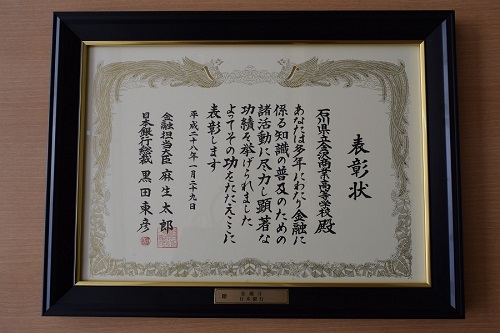 表彰状
石川県立金沢商業高等学校 殿
あなたは多年にわたり金融に
係る知識の普及のための
諸活動に尽力し顕著な
功績を挙げられました
よってその功をたたえここに
表彰します
平成二十八年一月二十九日
金融担当大臣 麻生太郎
日本銀行総裁 黒田東彦
金融庁
日本銀行